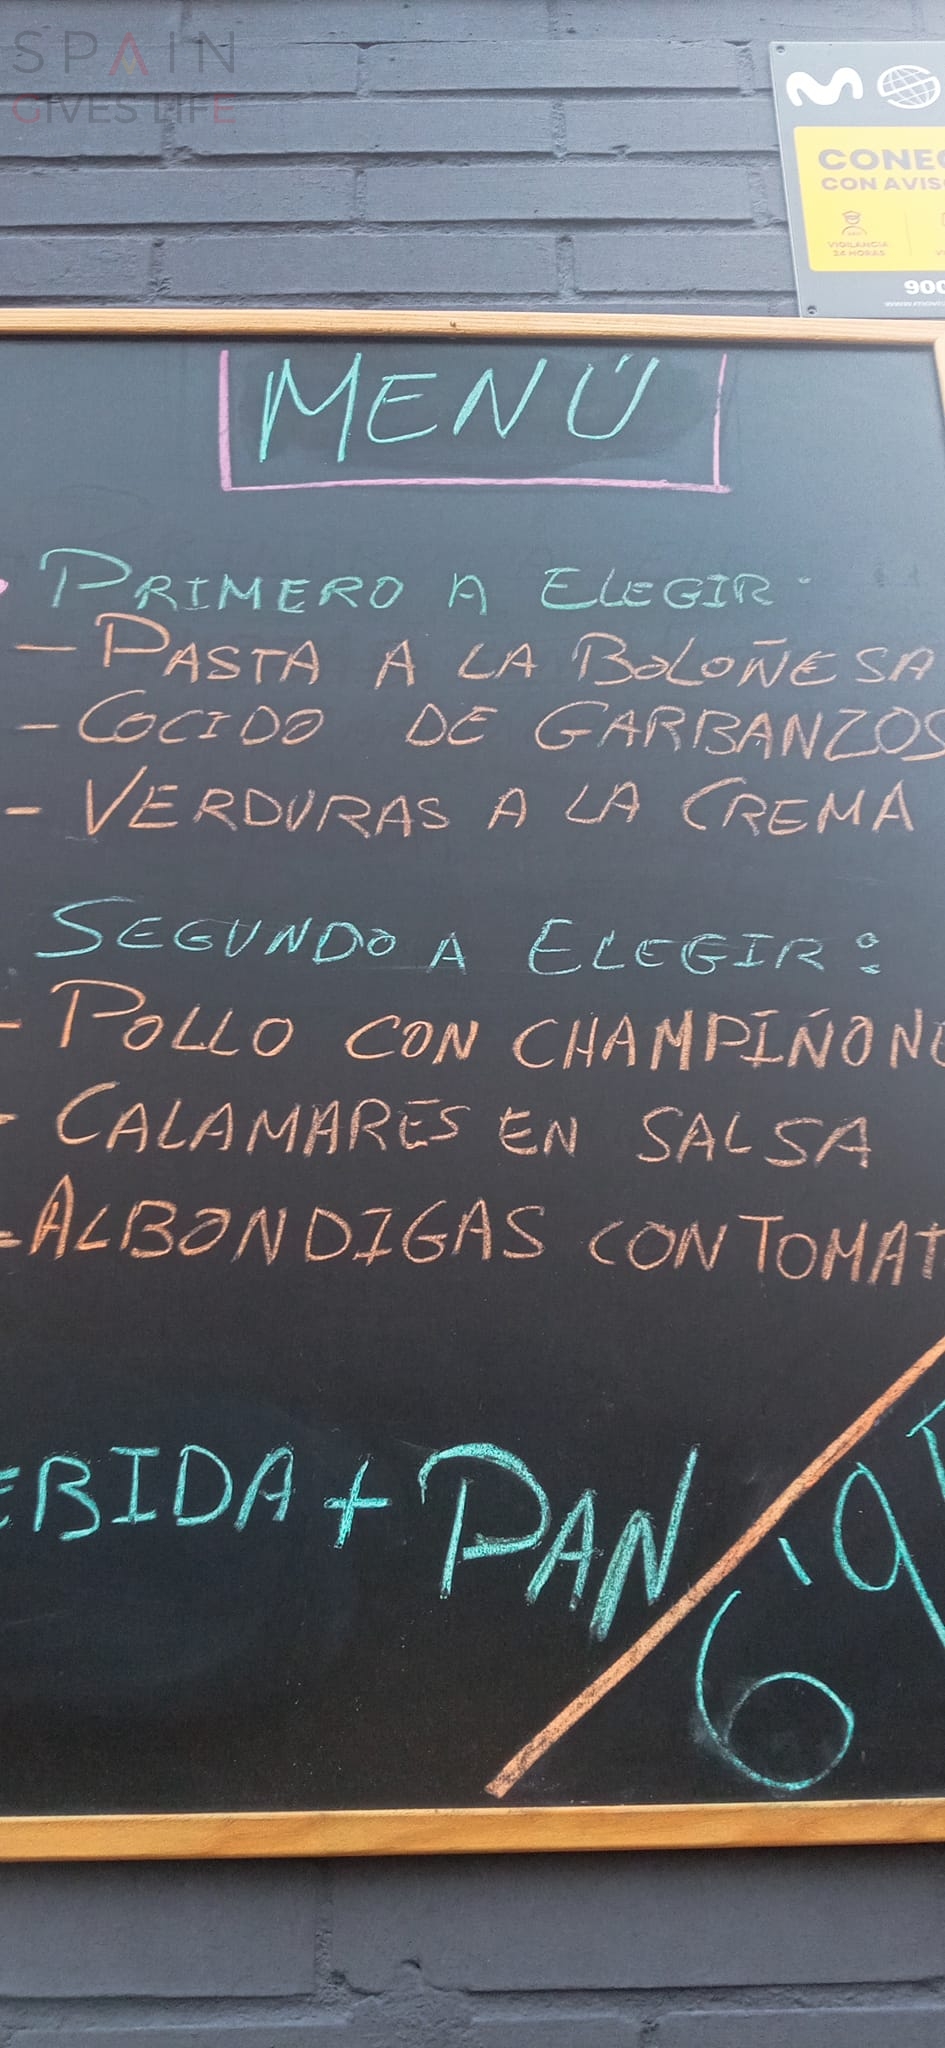 SPAIN
GIVES LIFE
CONEC
CON AVIS
VIGILANCIA
24 HORAS
900
MENÚ
PRIMERO A ELEGIR:
- PASTA A LA BOLOÑESA
- COCIDO DE GARBANZOS
- VERDURAS A LA CREMA
SEGUNDO A ELEGIR:
- POLLO CON CHAMPIÑONE
- CALAMARES EN SALSA
- ALBONDIGAS CON TOMAT
EBIDA + PAN
6'9